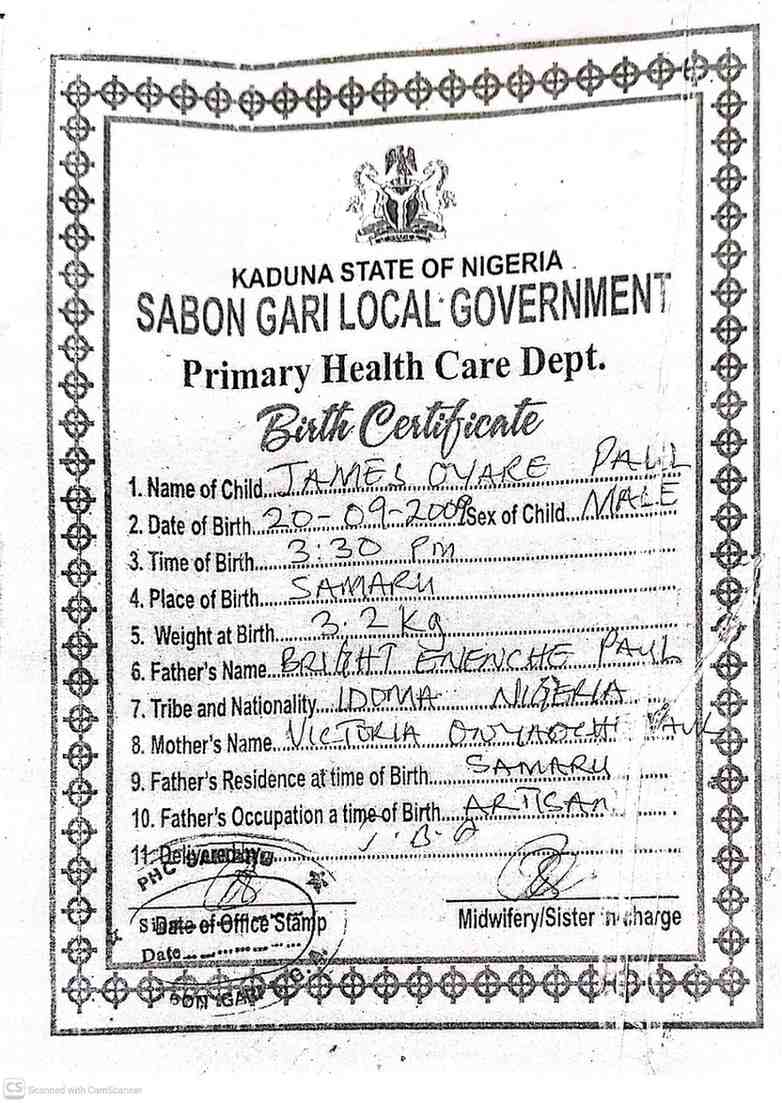 KADUNA STATE OF NIGERIA
SABON GARI LOCAL GOVERNMENT
Primary Health Care Dept.
Birth Certificate
1. Name of Child...JAMES OYARE PAUL
2. Date of Birth...20-09-2009 Sex of Child...MALE
3. Time of Birth...3:30 PM
4. Place of Birth...SAMARU
5. Weight at Birth...3.2kg
6. Father's Name...BRIGHT ENENCHE PAUL
7. Tribe and Nationality...IDOMA NIGERIA
8. Mother's Name...VICTORIA PAUL
9. Father's Residence at time of Birth...SAMARU
10. Father's Occupation a time of Birth...ARTISAN
11. Delivered by
PHC
Date of Office Stamp Midwifery/Sister in charge
Date
GARI L.G.A.
CS Scanned with CamScanner